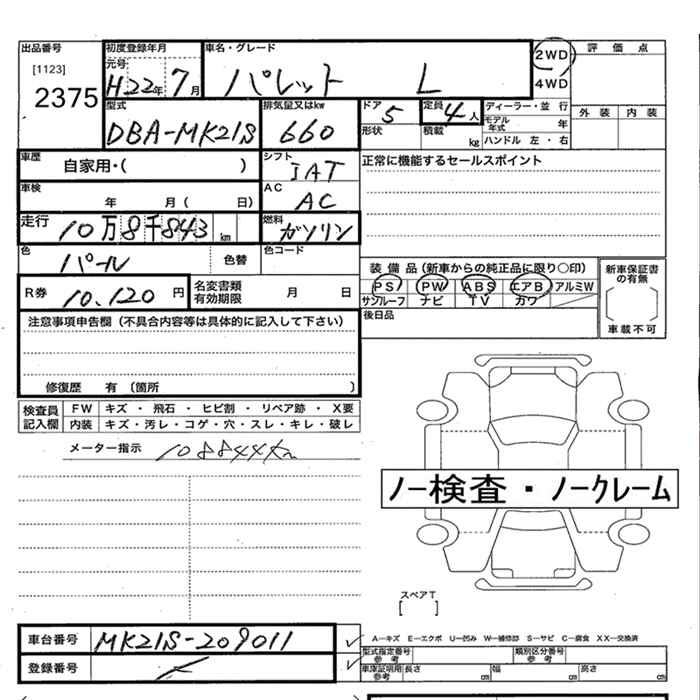 出品番号 初度登録年月 車名・グレード 2WD 評価点
[1123] 元号 H22年 7月 パレット L 4WD
2375 型式 排気量又はkw ドア 5 定員 4人 ディーラー・並行 外装 内装
DBA-MK21S 660 形状 積載 kg モデル年式 年
ハンドル 左・右
車歴 自家用・( ) シフト IAT 正常に機能するセールスポイント
車検 年 月( 日) AC AC
走行 10万8千843km 燃料 ガソリン
色 パール 色替 色コード 装備品(新車からの純正品に限り○印) 新車保証書の有無
R券 10.120円 名変書類有効期限 月 日 PS PW ABS エアB アルミW
サンルーフ ナビ TV カワ
後日品 車載不可
注意事項申告欄(不具合内容等は具体的に記入して下さい)
修復歴 有(箇所 )
検査員記入欄 FW キズ・飛石・ヒビ割・リペア跡・X要
内装 キズ・汚レ・コゲ・穴・スレ・キレ・破レ
メーター指示 108844km
ノー検査・ノークレーム
スペアT
[ ]
車台番号 MK21S-209011 A－キズ E－エクボ U－凹み W－補修跡 S－サビ C－腐食 XX－交換済
登録番号 型式指定番号参考 類別区分番号参考
車庫証明用参考 長さ cm 幅 cm 高さ cm